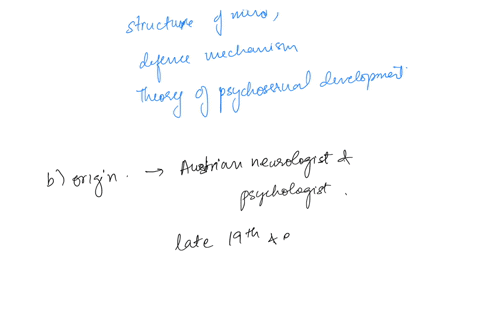 structure of mind,
defence mechanism
theory of psychosexual development.
b) origin. → Austrian neurologist &
psychologist.
late 19th &